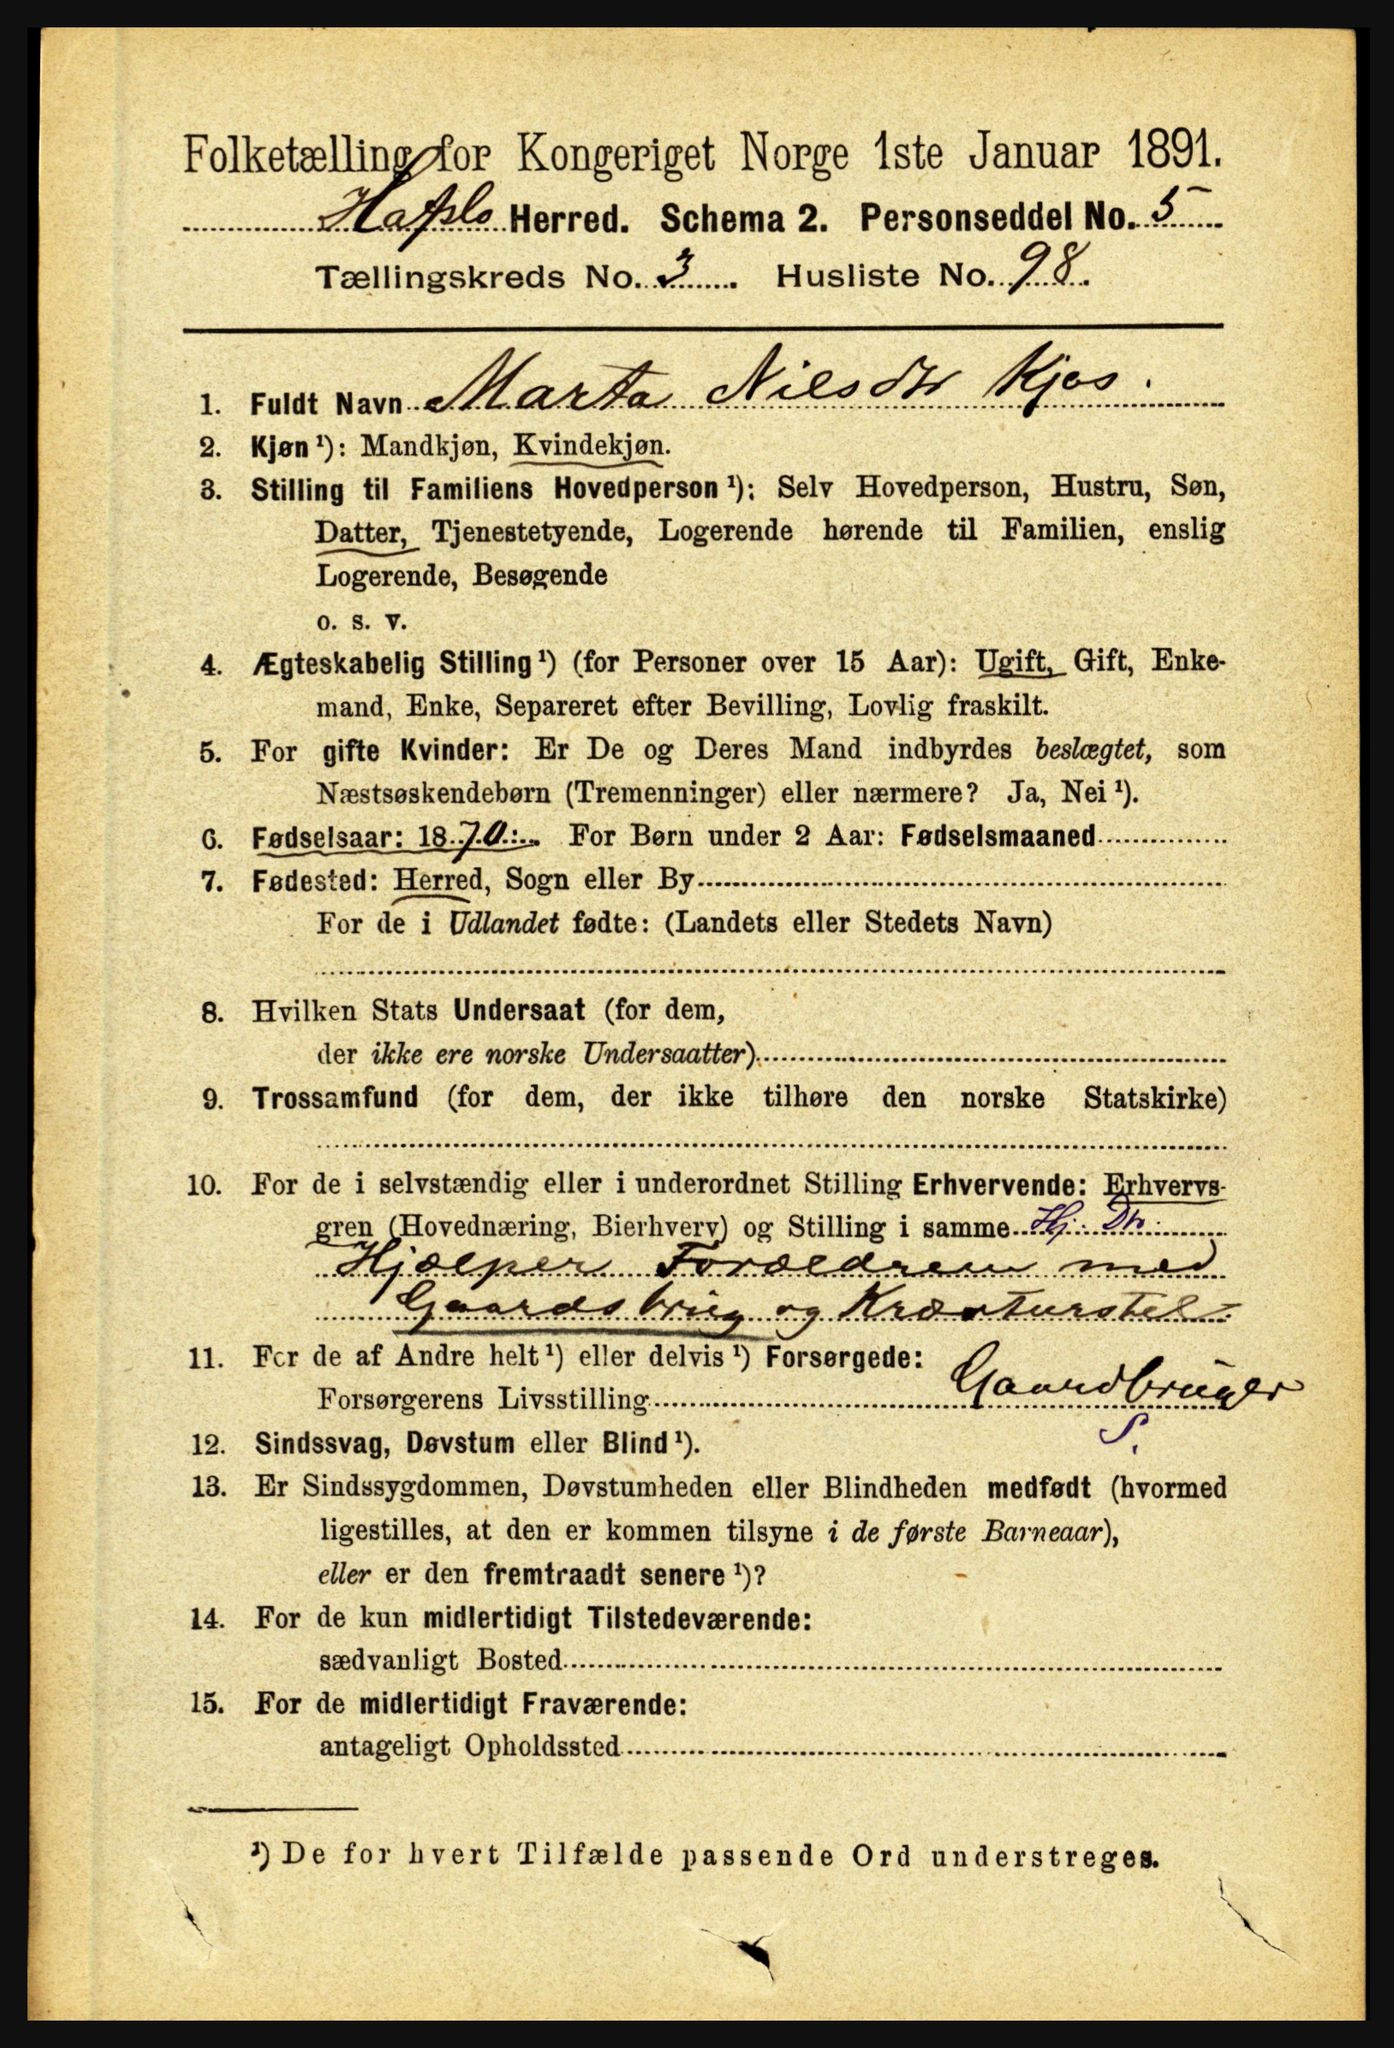 Folketælling for Kongeriget Norge 1ste Januar 1891.
Hafslo Herred. Schema 2. Personseddel No. 5
Tællingskreds No. 3. Husliste No. 98.
1. Fuldt Navn Marta Nilsdtr Kjos.
2. Kjøn¹): Mandkjøn, Kvindekjøn.
3. Stilling til Familiens Hovedperson¹): Selv Hovedperson, Hustru, Søn,
Datter, Tjenestetyende, Logerende hørende til Familien, enslig
Logerende, Besøgende
o. s. v.
4. Ægteskabelig Stilling¹) (for Personer over 15 Aar): Ugift, Gift, Enke-
mand, Enke, Separeret efter Bevilling, Lovlig fraskilt.
5. For gifte Kvinder: Er De og Deres Mand indbyrdes beslægtet, som
Næstsøskendebørn (Tremenninger) eller nærmere? Ja, Nei¹).
6. Fødselsaar: 1870. For Børn under 2 Aar: Fødselsmaaned
7. Fødested: Herred, Sogn eller By
For de i Udlandet fødte: (Landets eller Stedets Navn)
8. Hvilken Stats Undersaat (for dem,
der ikke ere norske Undersaatter)
9. Trossamfund (for dem, der ikke tilhøre den norske Statskirke)
10. For de i selvstændig eller i underordnet Stilling Erhvervende: Erhvervs-
gren (Hovednæring, Bierhverv) og Stilling i samme Hj. Dtr.
Hjælper Forældrene med
Gaardsbrug og Kræturstel
11. For de af Andre helt¹) eller delvis¹) Forsørgede:
Forsørgerens Livsstilling Gaardbruger
S.
12. Sindssvag, Døvstum eller Blind¹).
13. Er Sindssygdommen, Døvstumheden eller Blindheden medfødt (hvormed
ligestilles, at den er kommen tilsyne i de første Barneaar),
eller er den fremtraadt senere¹)?
14. For de kun midlertidigt Tilstedeværende:
sædvanligt Bosted
15. For de midlertidigt Fraværende:
antageligt Opholdssted
¹) De for hvert Tilfælde passende Ord understreges.